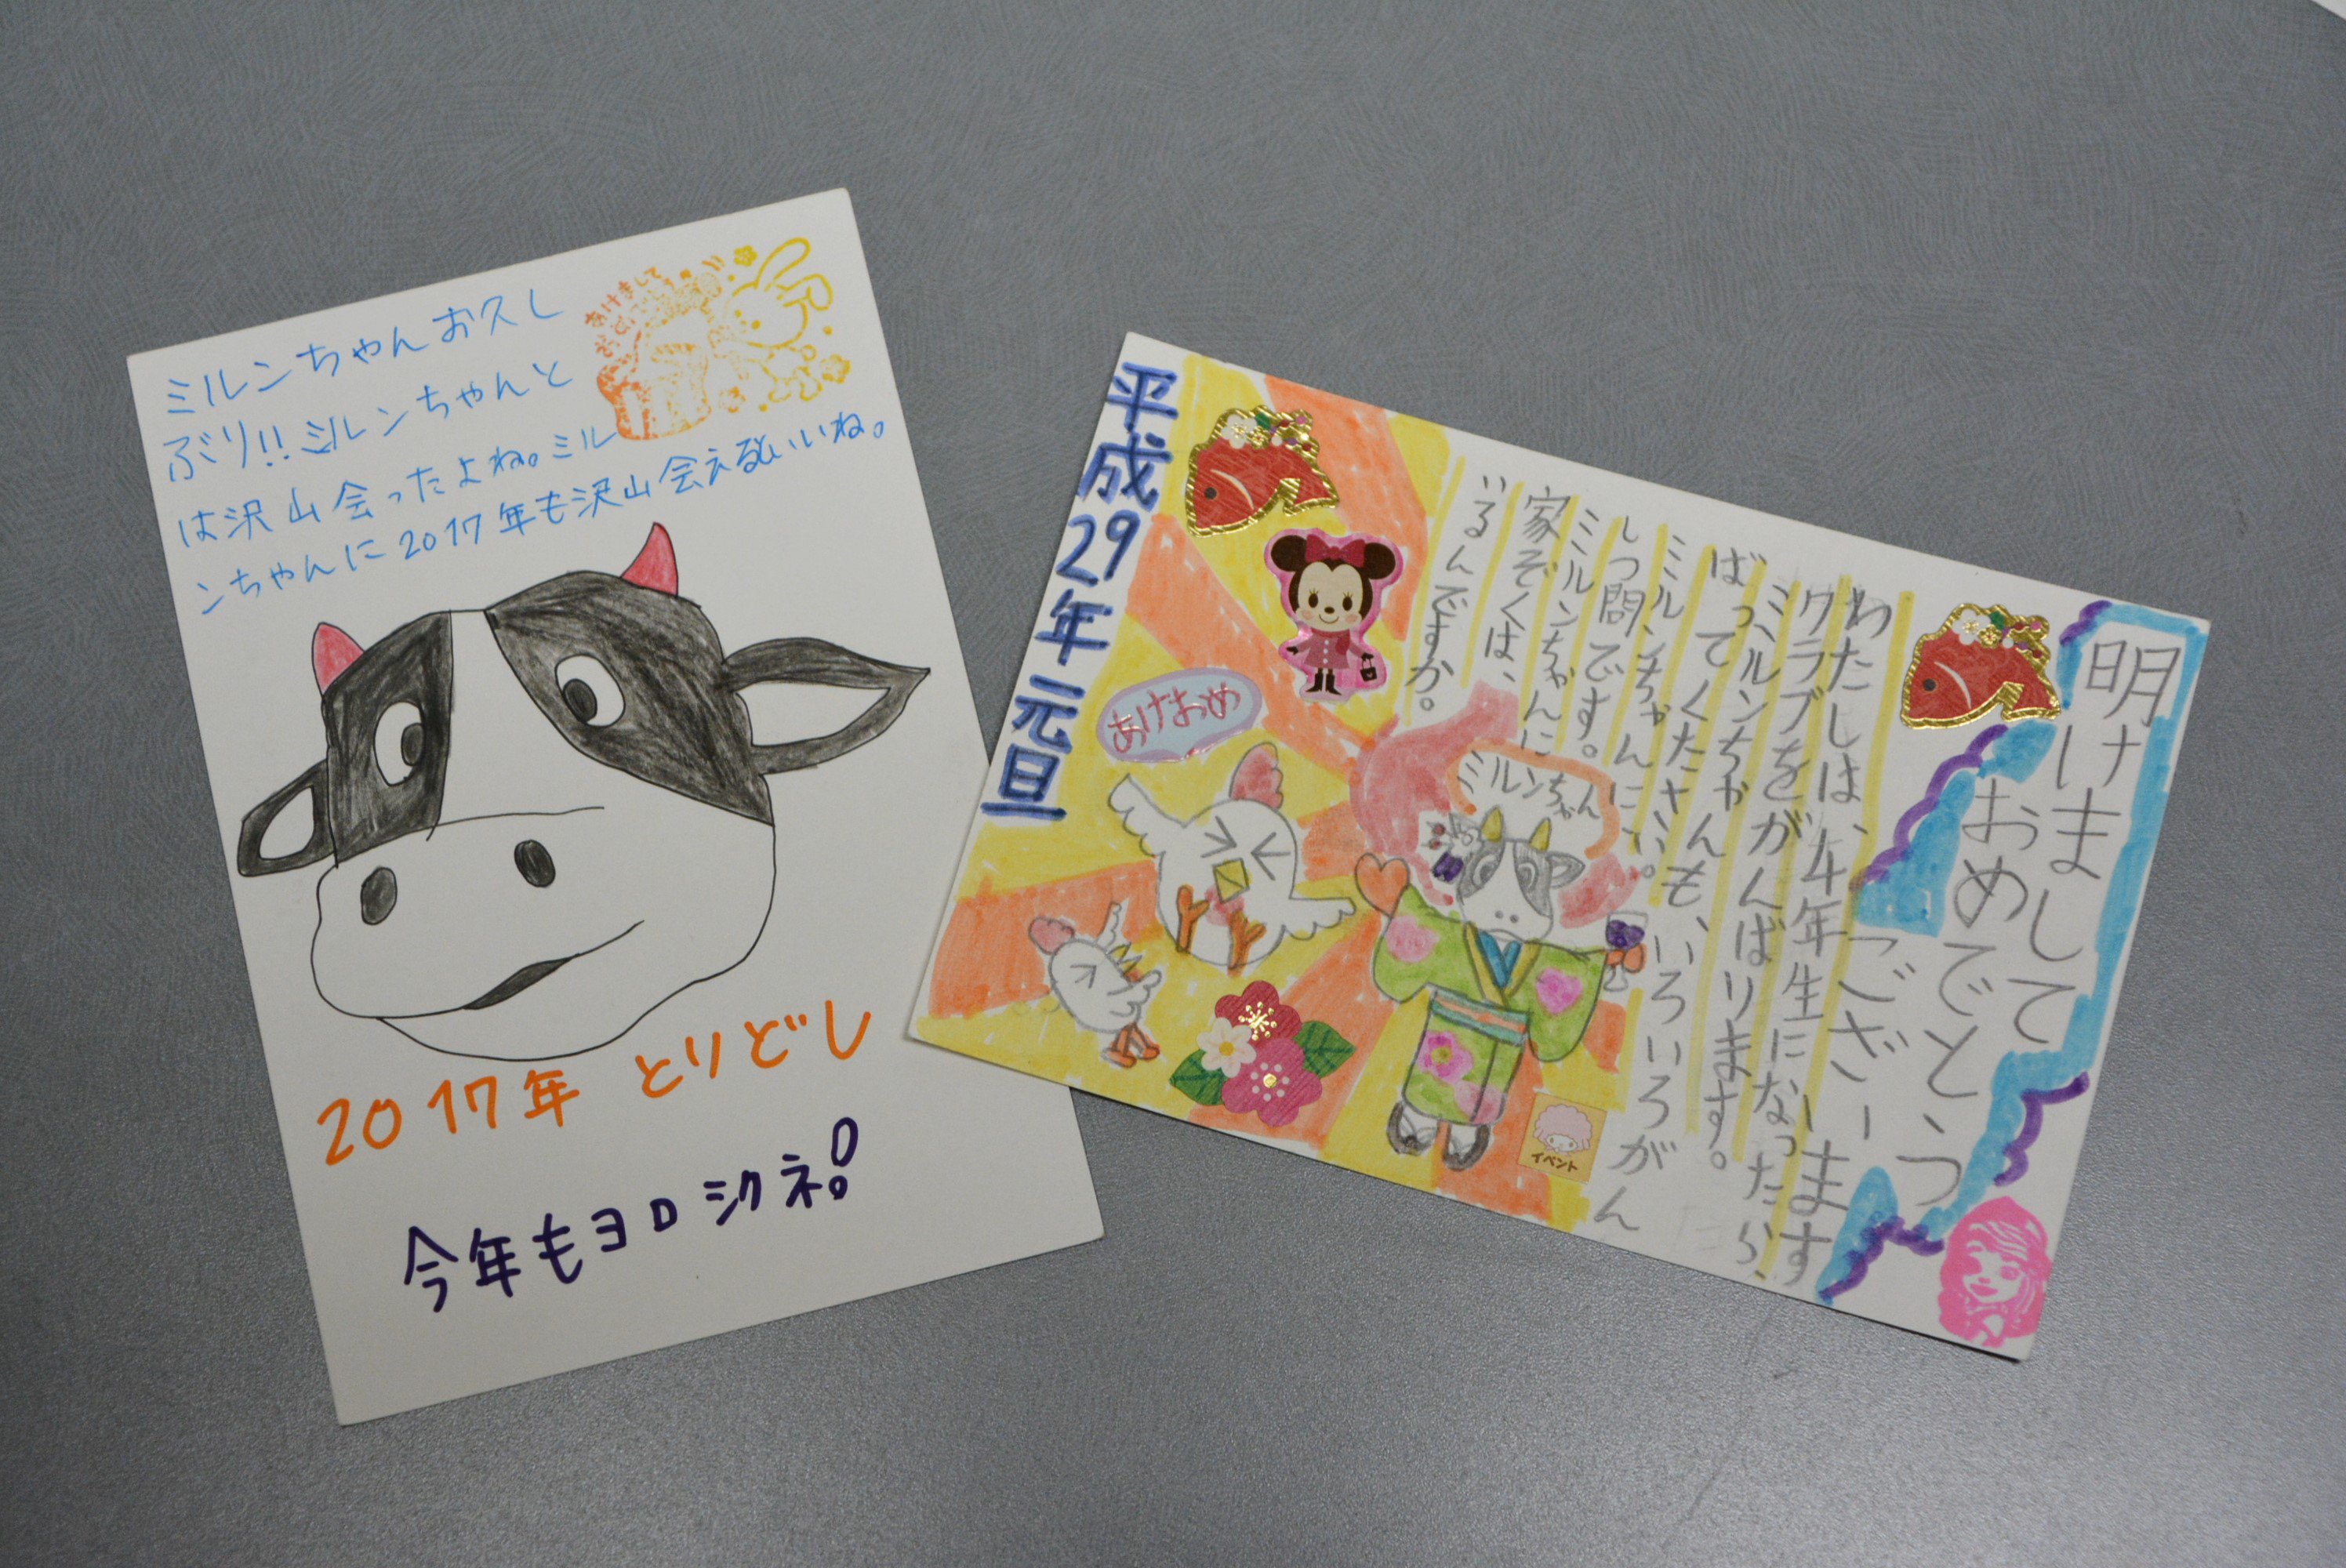 ミルンちゃんお久し
ぶり!!ミルンちゃんと
は沢山会ったよね。ミル
ンちゃんに2017年も沢山会えるといいね。
あけまして
2017年 とりどし
今年もヨロシクネ!
明けまして
おめでとう
ございます
わたしは、4年生になったら、
クラブをがんばります。
ミルンちゃんも、いろいろがん
ばってくたさい。
ミルンちゃんに
しつ問です。
ミルンちゃんに
家ぞくは、
いるんですか。
ミルンちゃん
あけおめ
イベント
平成29年元旦